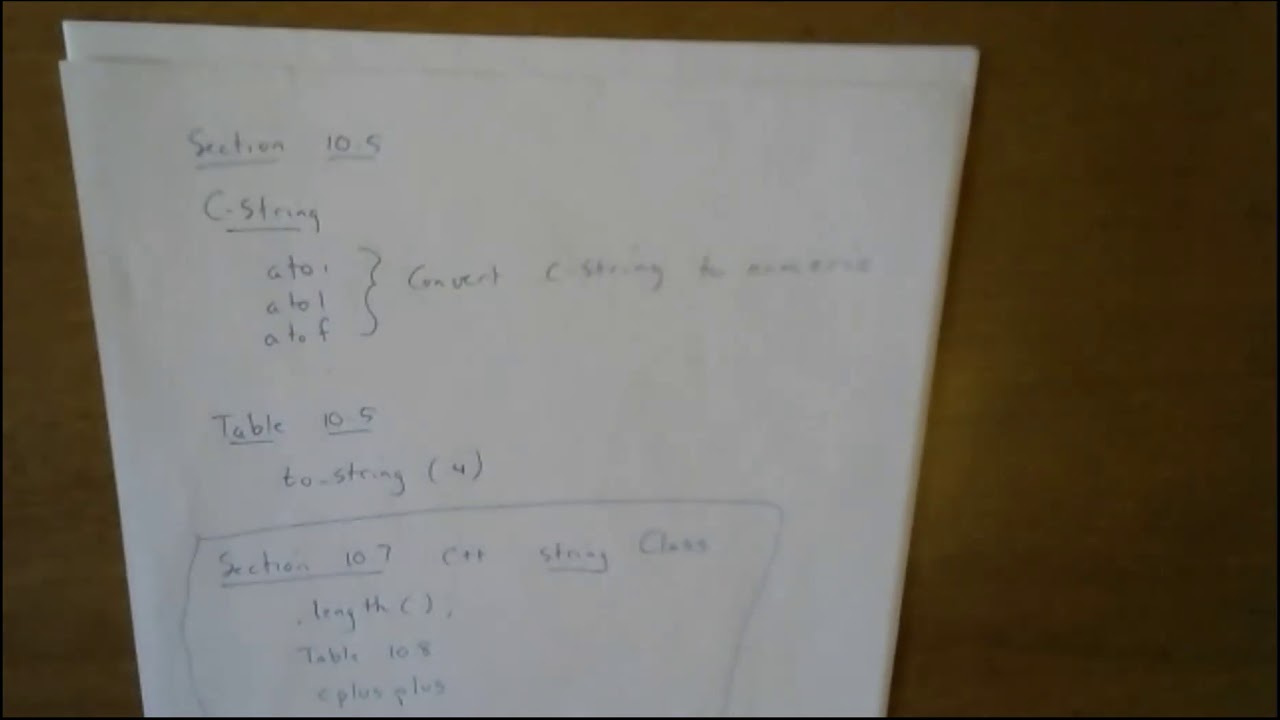 Section 10.5
C-string
atoi
atol
atof
} Convert C-string to numeric
Table 10.5
to_string (4)
Section 10.7 C++ string Class
.length(),
Table 10.8
cplusplus